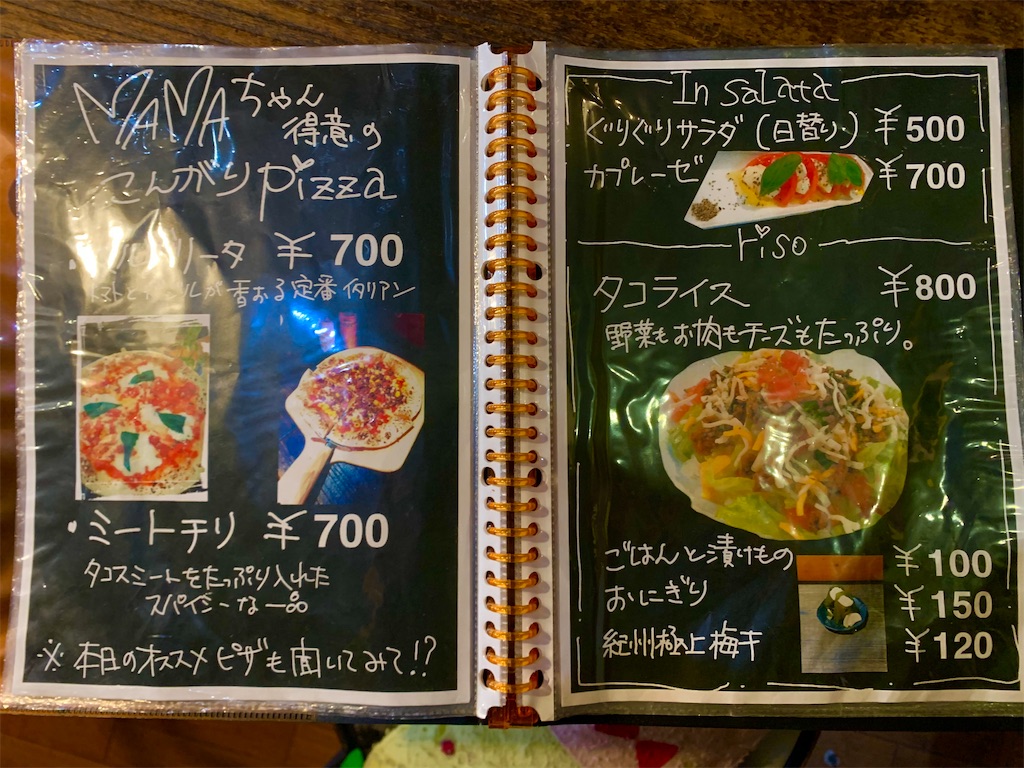 MAMAちゃん
得意の
こんがりpizza
リータ ¥700
が香おる定番イタリアン
・ミートチリ ¥700
タコスミートをたっぷり入れた
スパイシーな一品
※本日のオススメピザも聞いてみて!?
In salata
ぐりぐりサラダ(日替り) ¥500
カプレーゼ ¥700
riso
タコライス ¥800
野菜もお肉もチーズもたっぷり。
ごはんと漬けもの ¥100
おにぎり ¥150
紀州極上梅干 ¥120